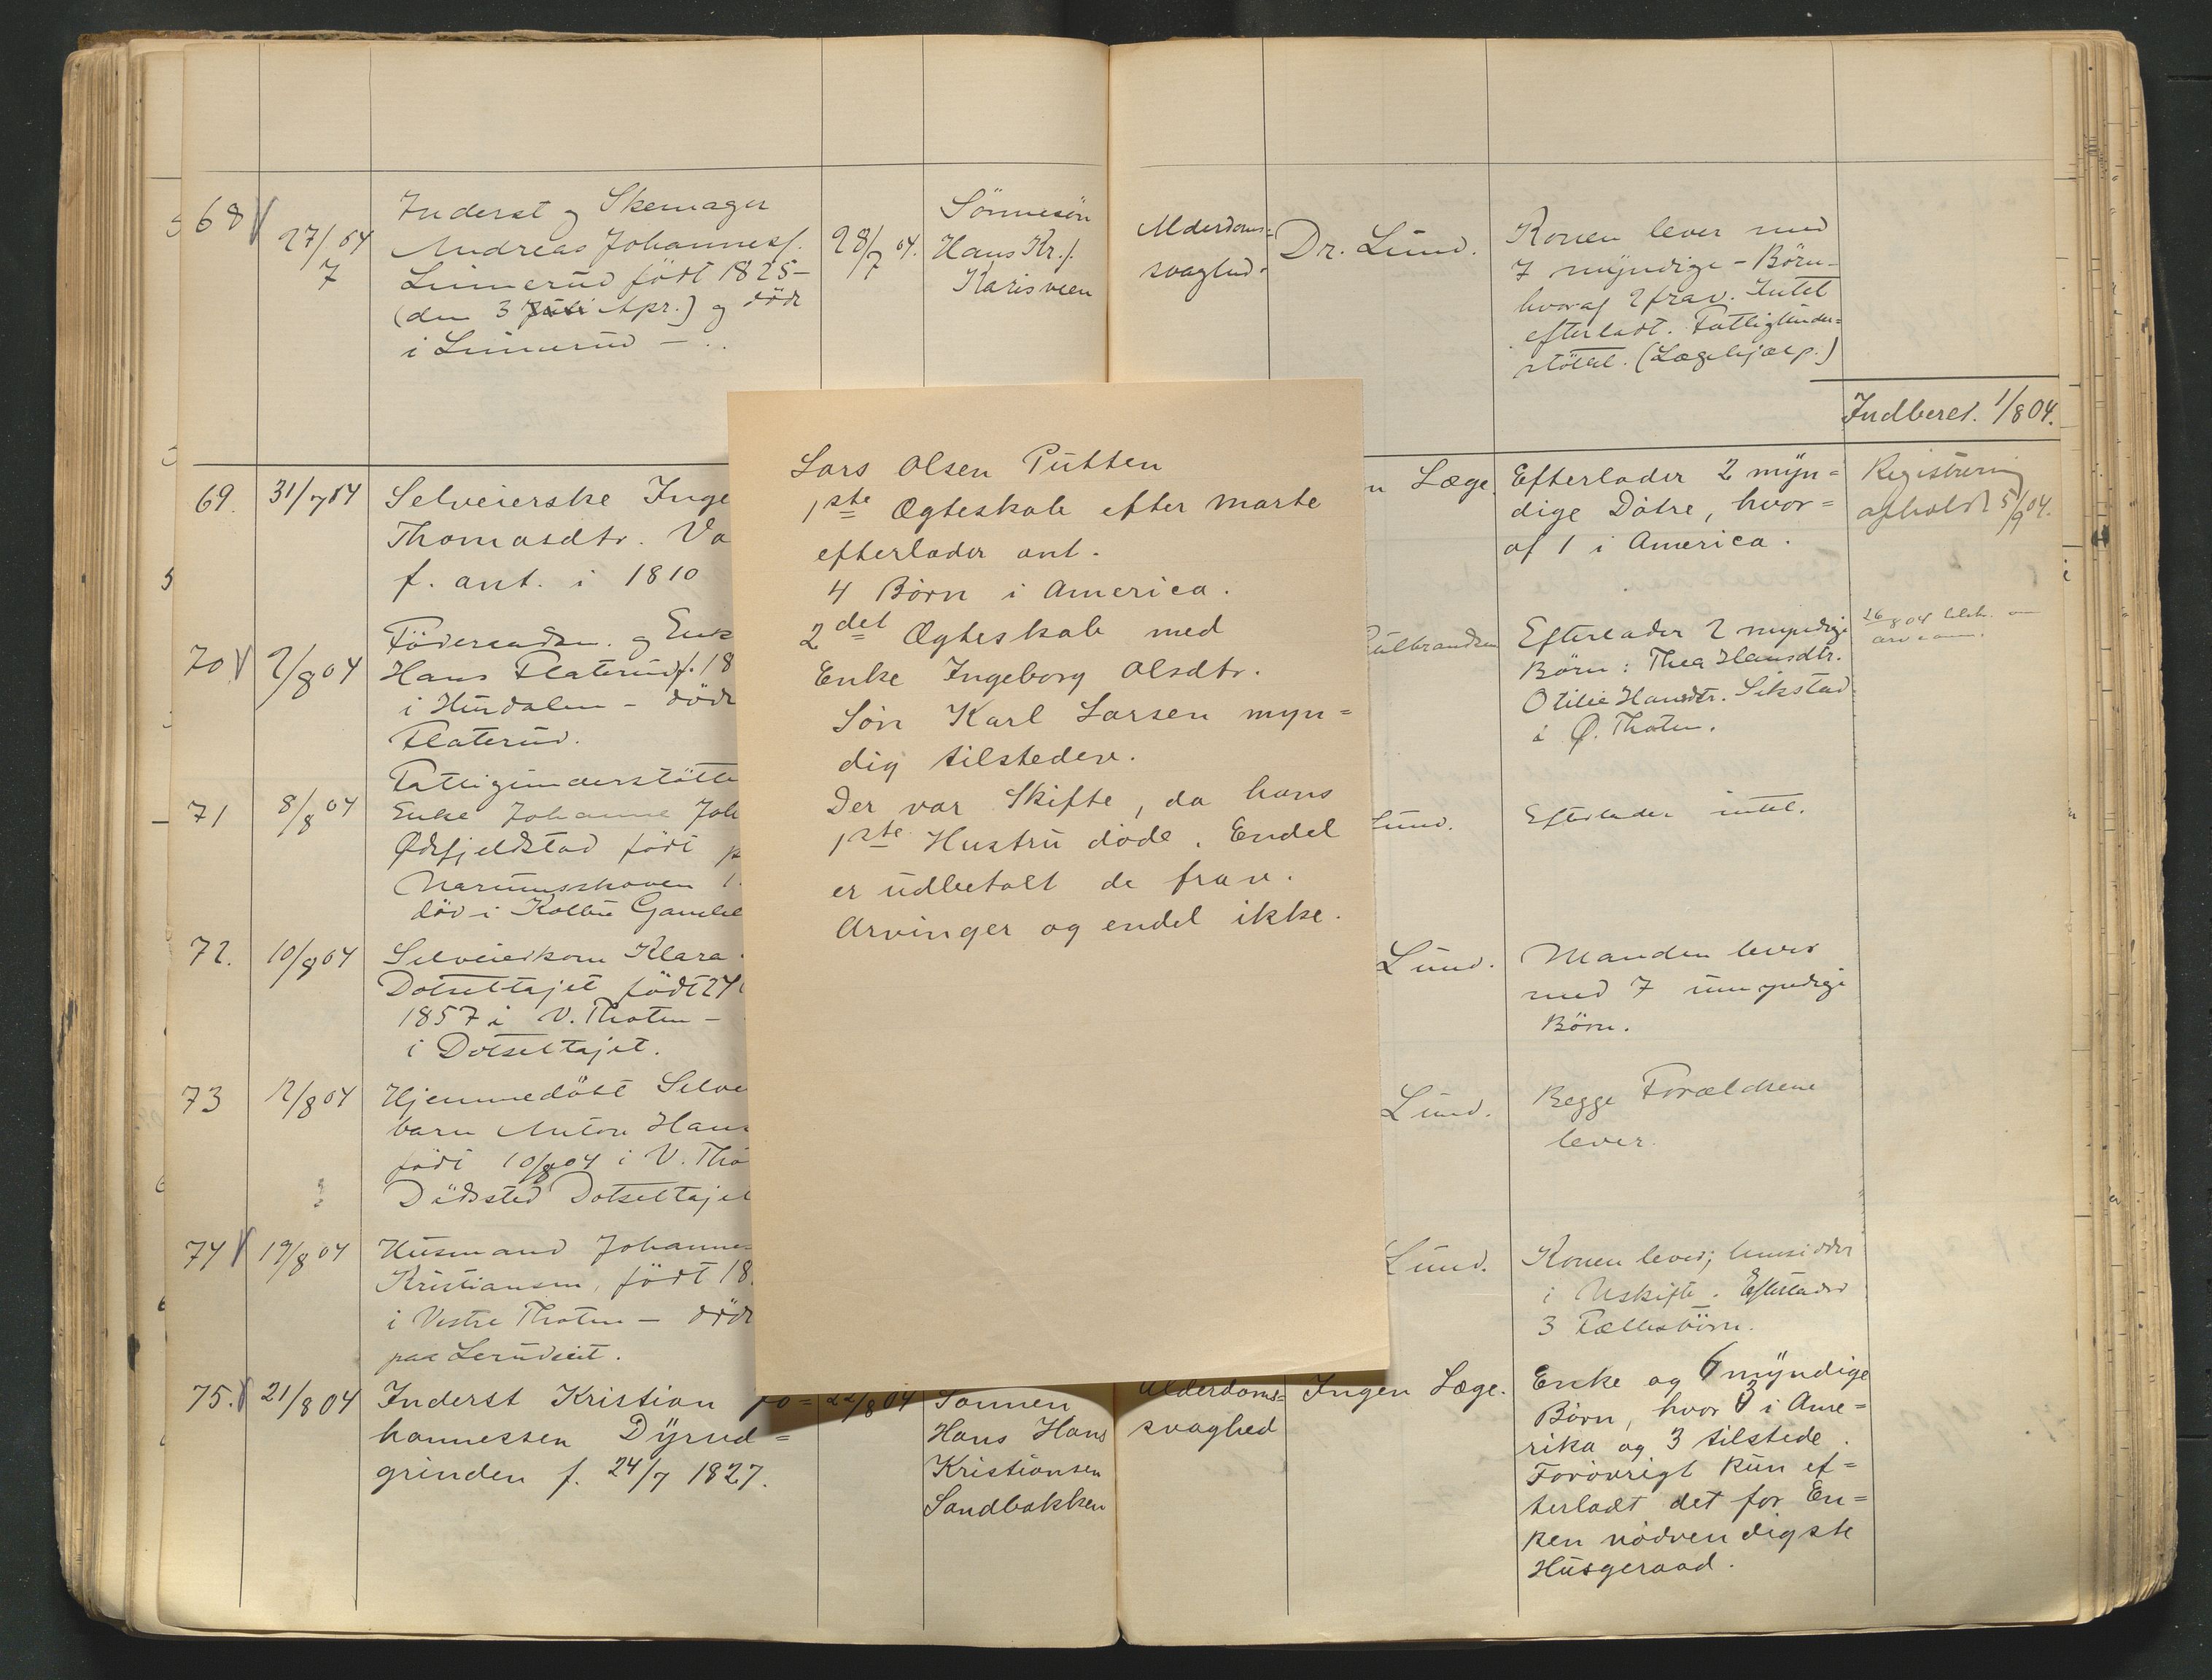 68
27/7 04
Inderst og Skomager
Andreas Johannesf.
Linnerud født 1825-
(den 3 Juli Apr.) og död
i Linnerud -
28/7 04.
Sönnesön
Hans Kr.f.
Karisveen
Alderdoms=
svaghed.
Dr. Lund.
Konen lever med
7 myndige - Börn-
hvoraf 2 frav. Intet
efterladt. Fattigunder=
støttet. (Lægehjælp.)
Indberet. 1/8 04.
69.
31/7 04
Selveierske Inge
Thomasdtr. Va
f. ant. i 1810
n Læge.
Efterlader 2 myn=
dige Døtre, hvor=
af 1 i America.
Registrering
afholdt 5/9 04.
70
2/8 04
Föderaadsm. og Enk
Hans Flaterud f. 18
i Hurdalen - död
Flaterud.
Gulbrandsen
Efterlader 2 myndige
Börn: Thea Hansdtr.
Otilie Hansdtr. Sikstad
i Ø. Thoten.
26/8 04
71
8/8 04
Fattigunderstötte
Enke Johanne Joh
Ødsfjeldstad födt p
död i Kolbu Gamle
Lund.
Efterlader intet.
72.
10/8 04
Selveierkone Klara
Dotsettajet födt 24
1857 i V. Thoten -
i Dotsettajet.
Lund.
Manden lever
med 7 umyndige
Börn.
73
12/8 04
Hjemmedöbt Selve
barn Anton Hans
födt 10/8 04 i V. Tho
Dödssted Dotsettajet
Lund.
Begge Forældrene
lever.
74
19/8 04
Husmand Johannes
Kristiansen, födt 18
i Vestre Thoten - död
paa Lerudeit.
Lund.
Konen lever; hensidder
i Uskifte. Efterlader
3 Fællesbörn.
75.
21/8 04
Inderst Kristian Jo=
hannessen Dyrud=
grinden f. 24/7 1827.
22/8 04
Sønnen
Hans Hans
Kristiansen
Sandbakken
Alderdoms=
svaghed
Ingen Læge.
Enke og 6 myndige
Børn, hvor 3 i Ame=
rika og 3 tilstede.
Forøvrigt kun ef=
terladt det for En=
ken nødvendigste
Husgeraad.
Lars Olsen Putten
1ste Ægteskab efter Marte
efterlader ant.
4 Børn i America.
2det Ægteskab med
Enke Ingeborg Olsdtr.
Søn Karl Larsen myn=
dig tilstedev.
Der var Skifte, da hans
1ste Hustru døde. Endel
er udbetalt de frav.
Arvinger og endel ikke.